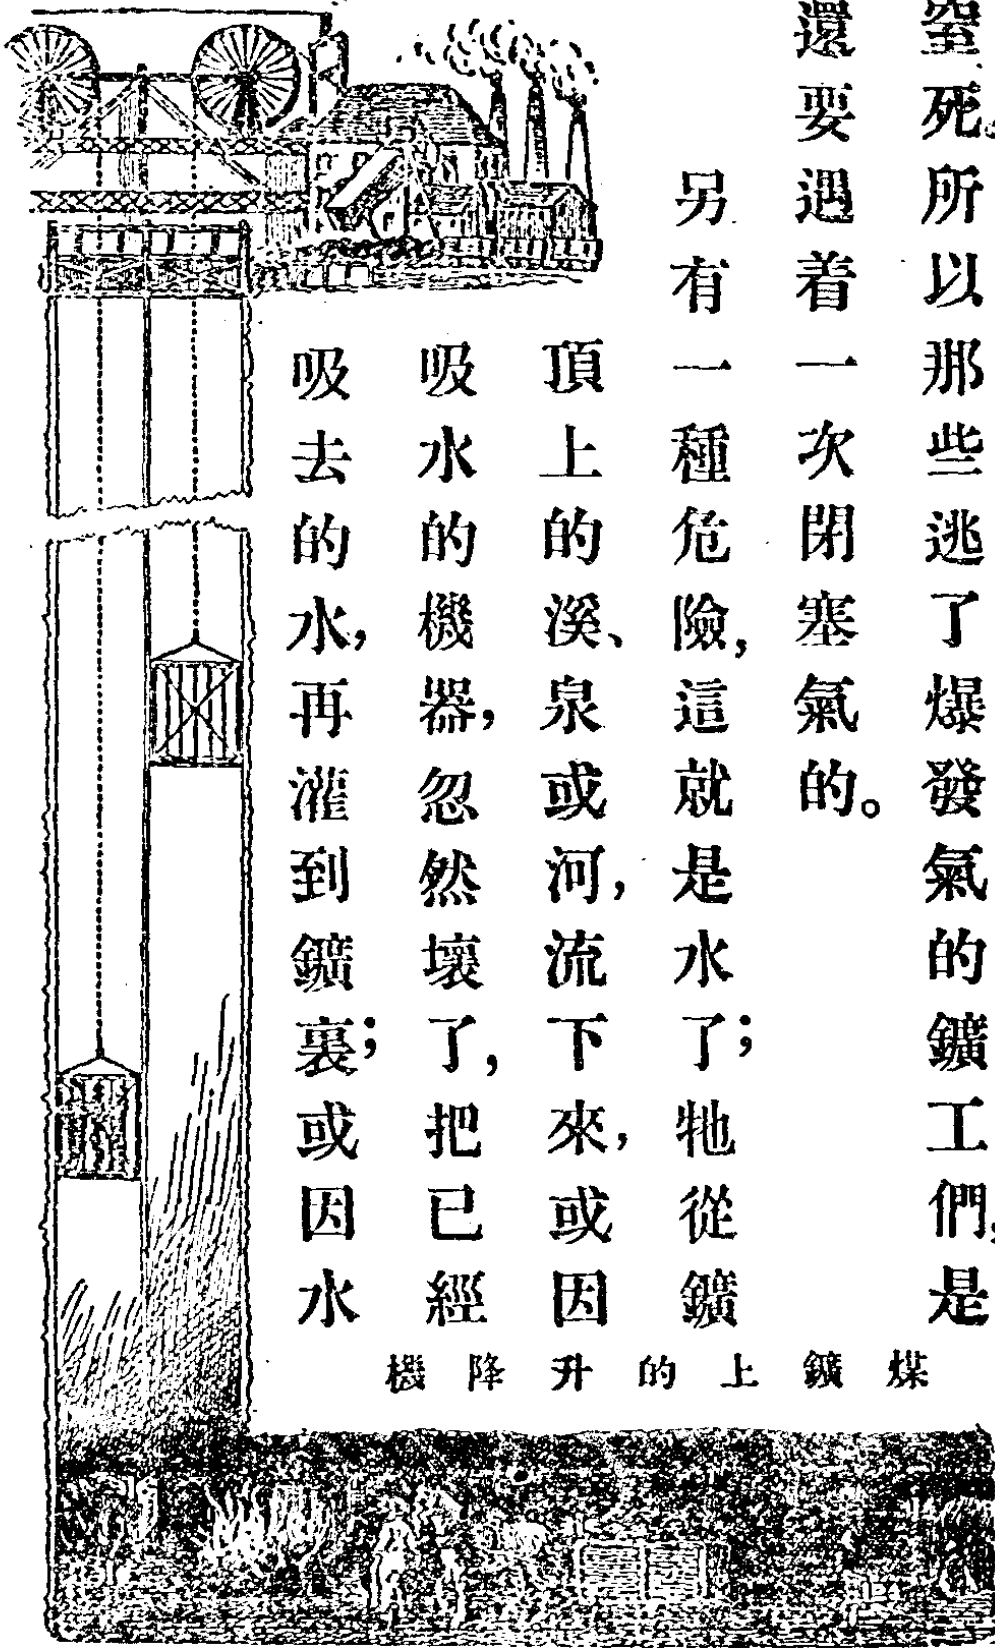 窒死，所以那些逃了爆發氣的鑛工們，是
還要遇着一次閉塞氣的。
另有一種危險，這就是水了；牠從鑛
頂上的溪、泉或河，流下來，或因
吸水的機器，忽然壞了，把已經
吸去的水，再灌到鑛裏；或因水
煤鑛上的升降機